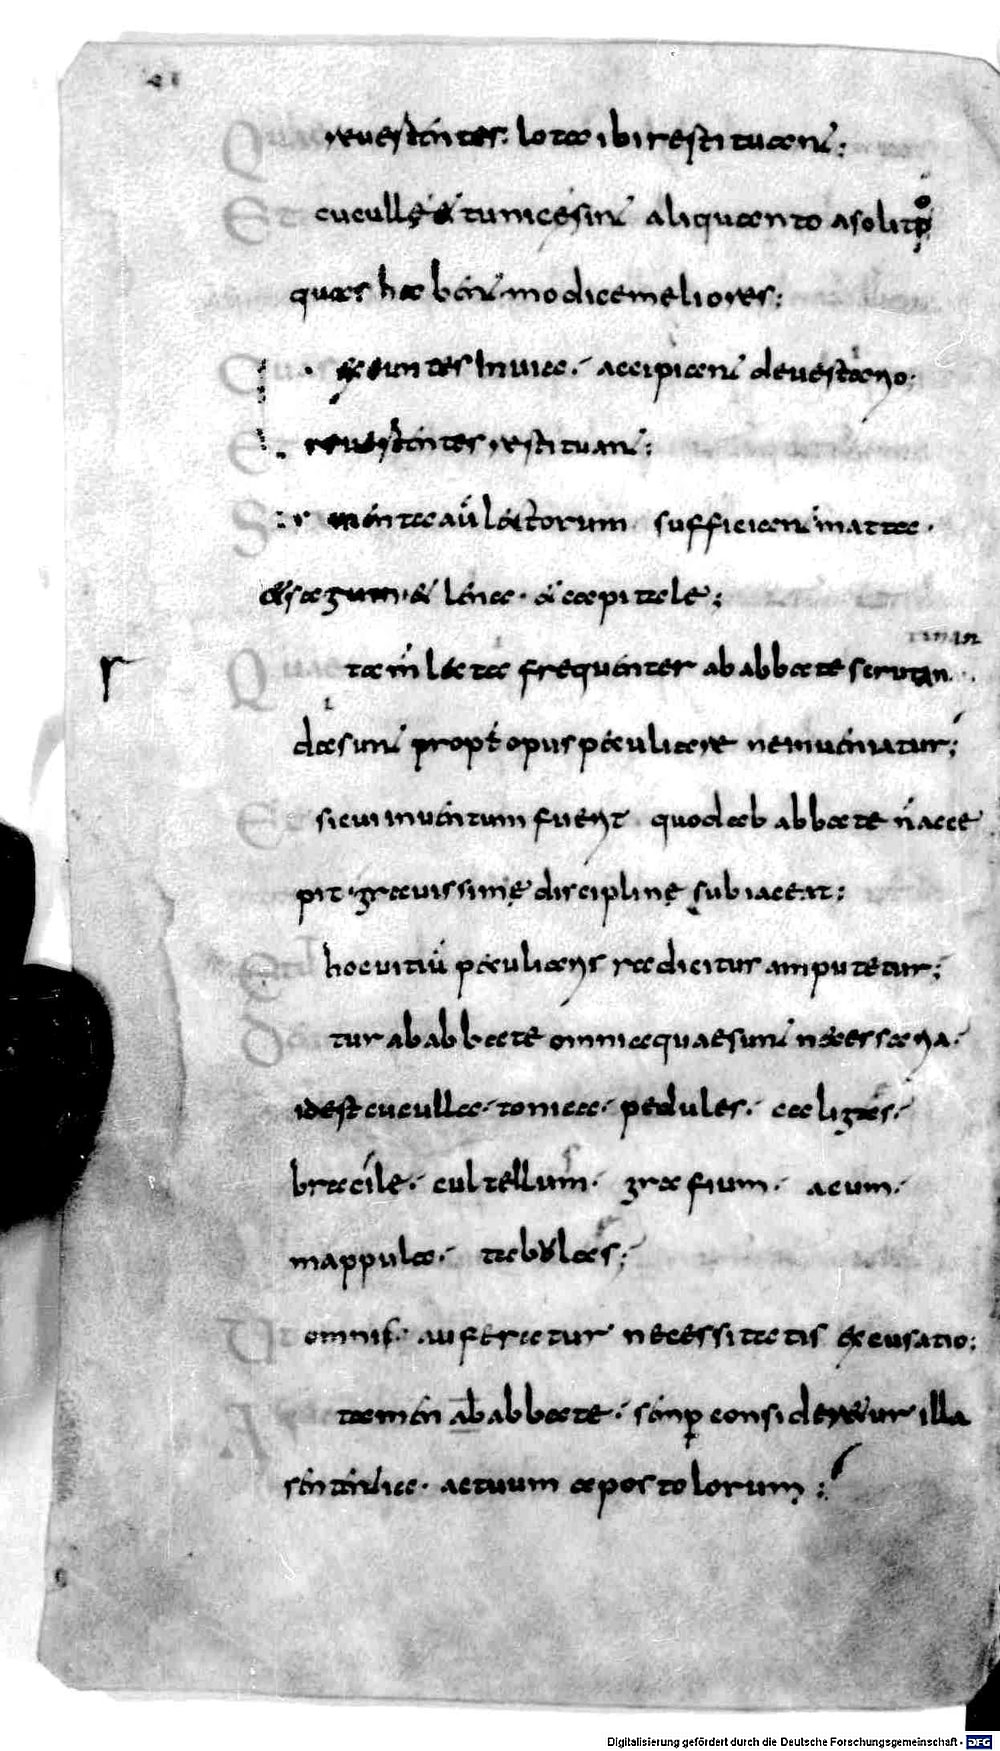 Qui reuestentes. lota ibi restituant;
Et cuculle & tunice sint aliquanto a solito
quas habent modice meliores;
Quas exeuntes in uia. accipiant de uestario;
Et reuertentes restituant;
Str mentea aū lectorum sufficiant matta.
& sagum. & lena. & capitale;
Quae tam̄ lecta frequenter ab abbate scrutan
da sunt propt opus peculiare ne inueniatur;
Et si cui inuentum fuerit quod ab abbate n̄ acce
pit. grauissime discipline subiaceat;
Et hoc uitiū peculiaris radicitur amputetur;
De tur ab abbate omnia quae sunt necessaria.
id est cuculla. tonica. pedules. caligas.
bracile. cultellum. grafium. acum.
mappula. tabulas;
Ut omnis auferatur necessitatis excusatio;
A tamen ab abbate. semp consideretur illa
sententia. actuum apostolorum;
Digitalisierung gefördert durch die Deutsche Forschungsgemeinschaft - DFG